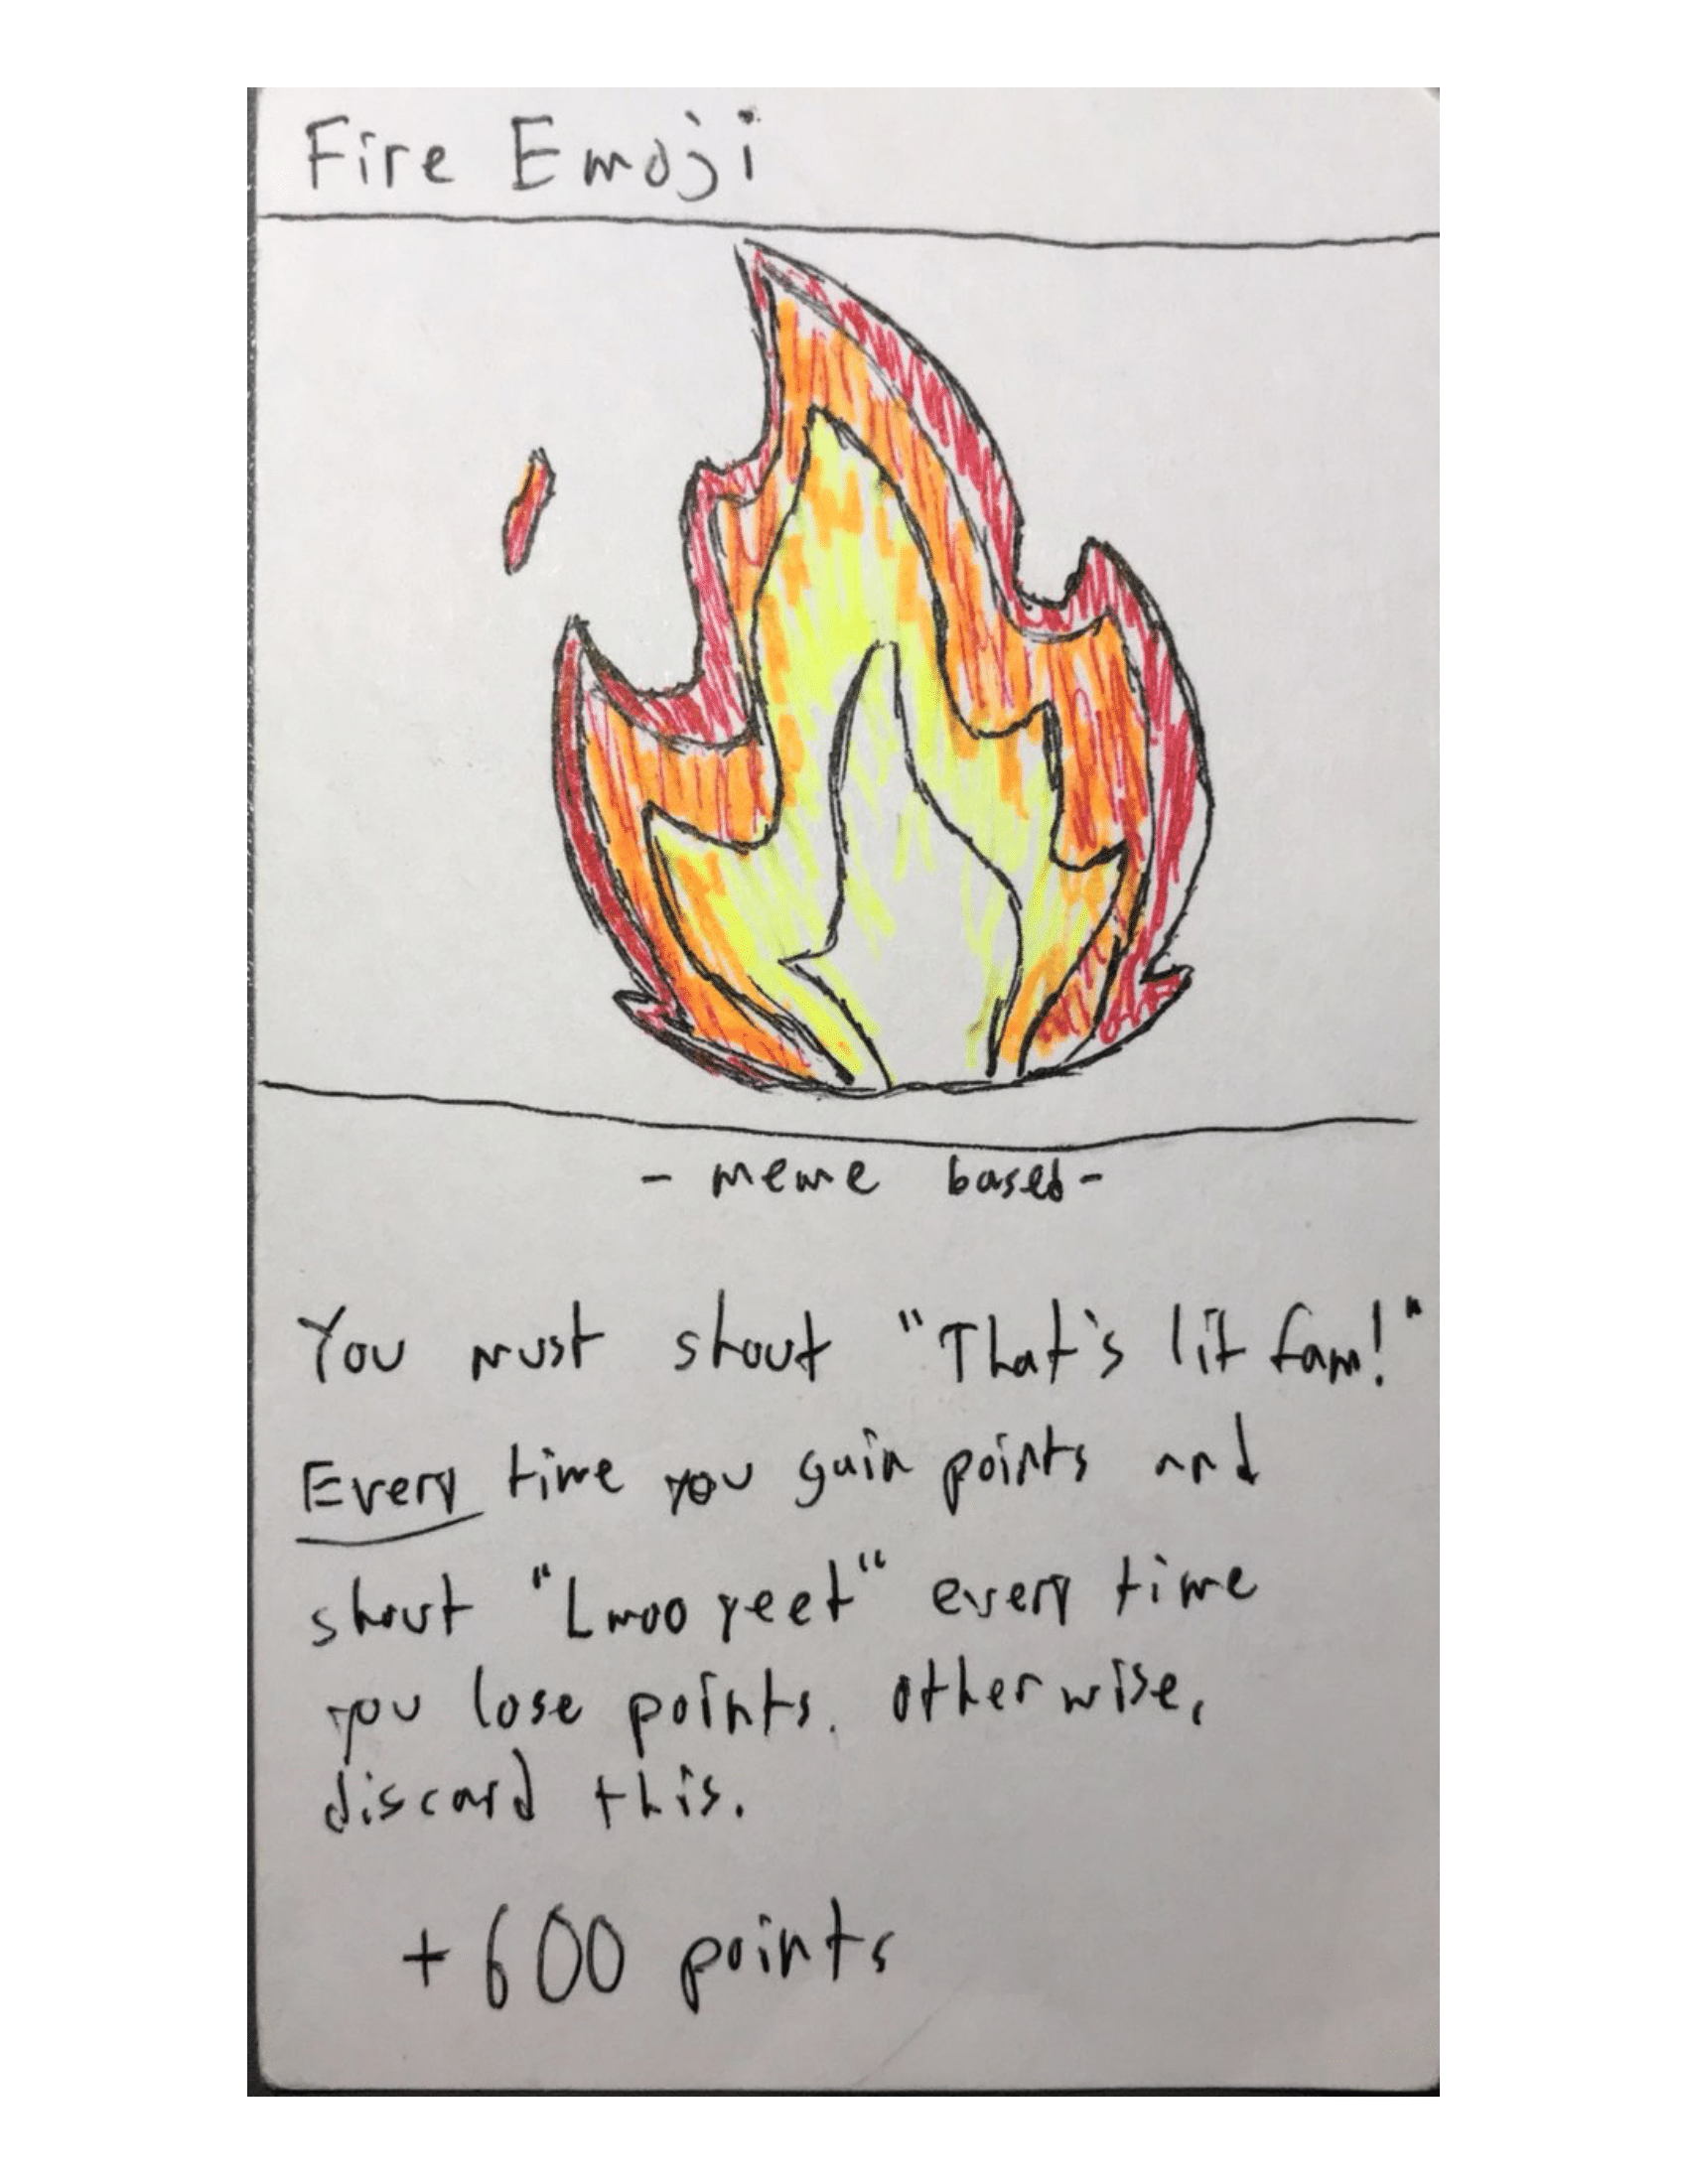 Fire Emoji
- meme based -
You must shout "That's lit fam!"
Every time you gain points and
shout "Lmoo yeet" every time
you lose points. otherwise,
discard this.
+600 points